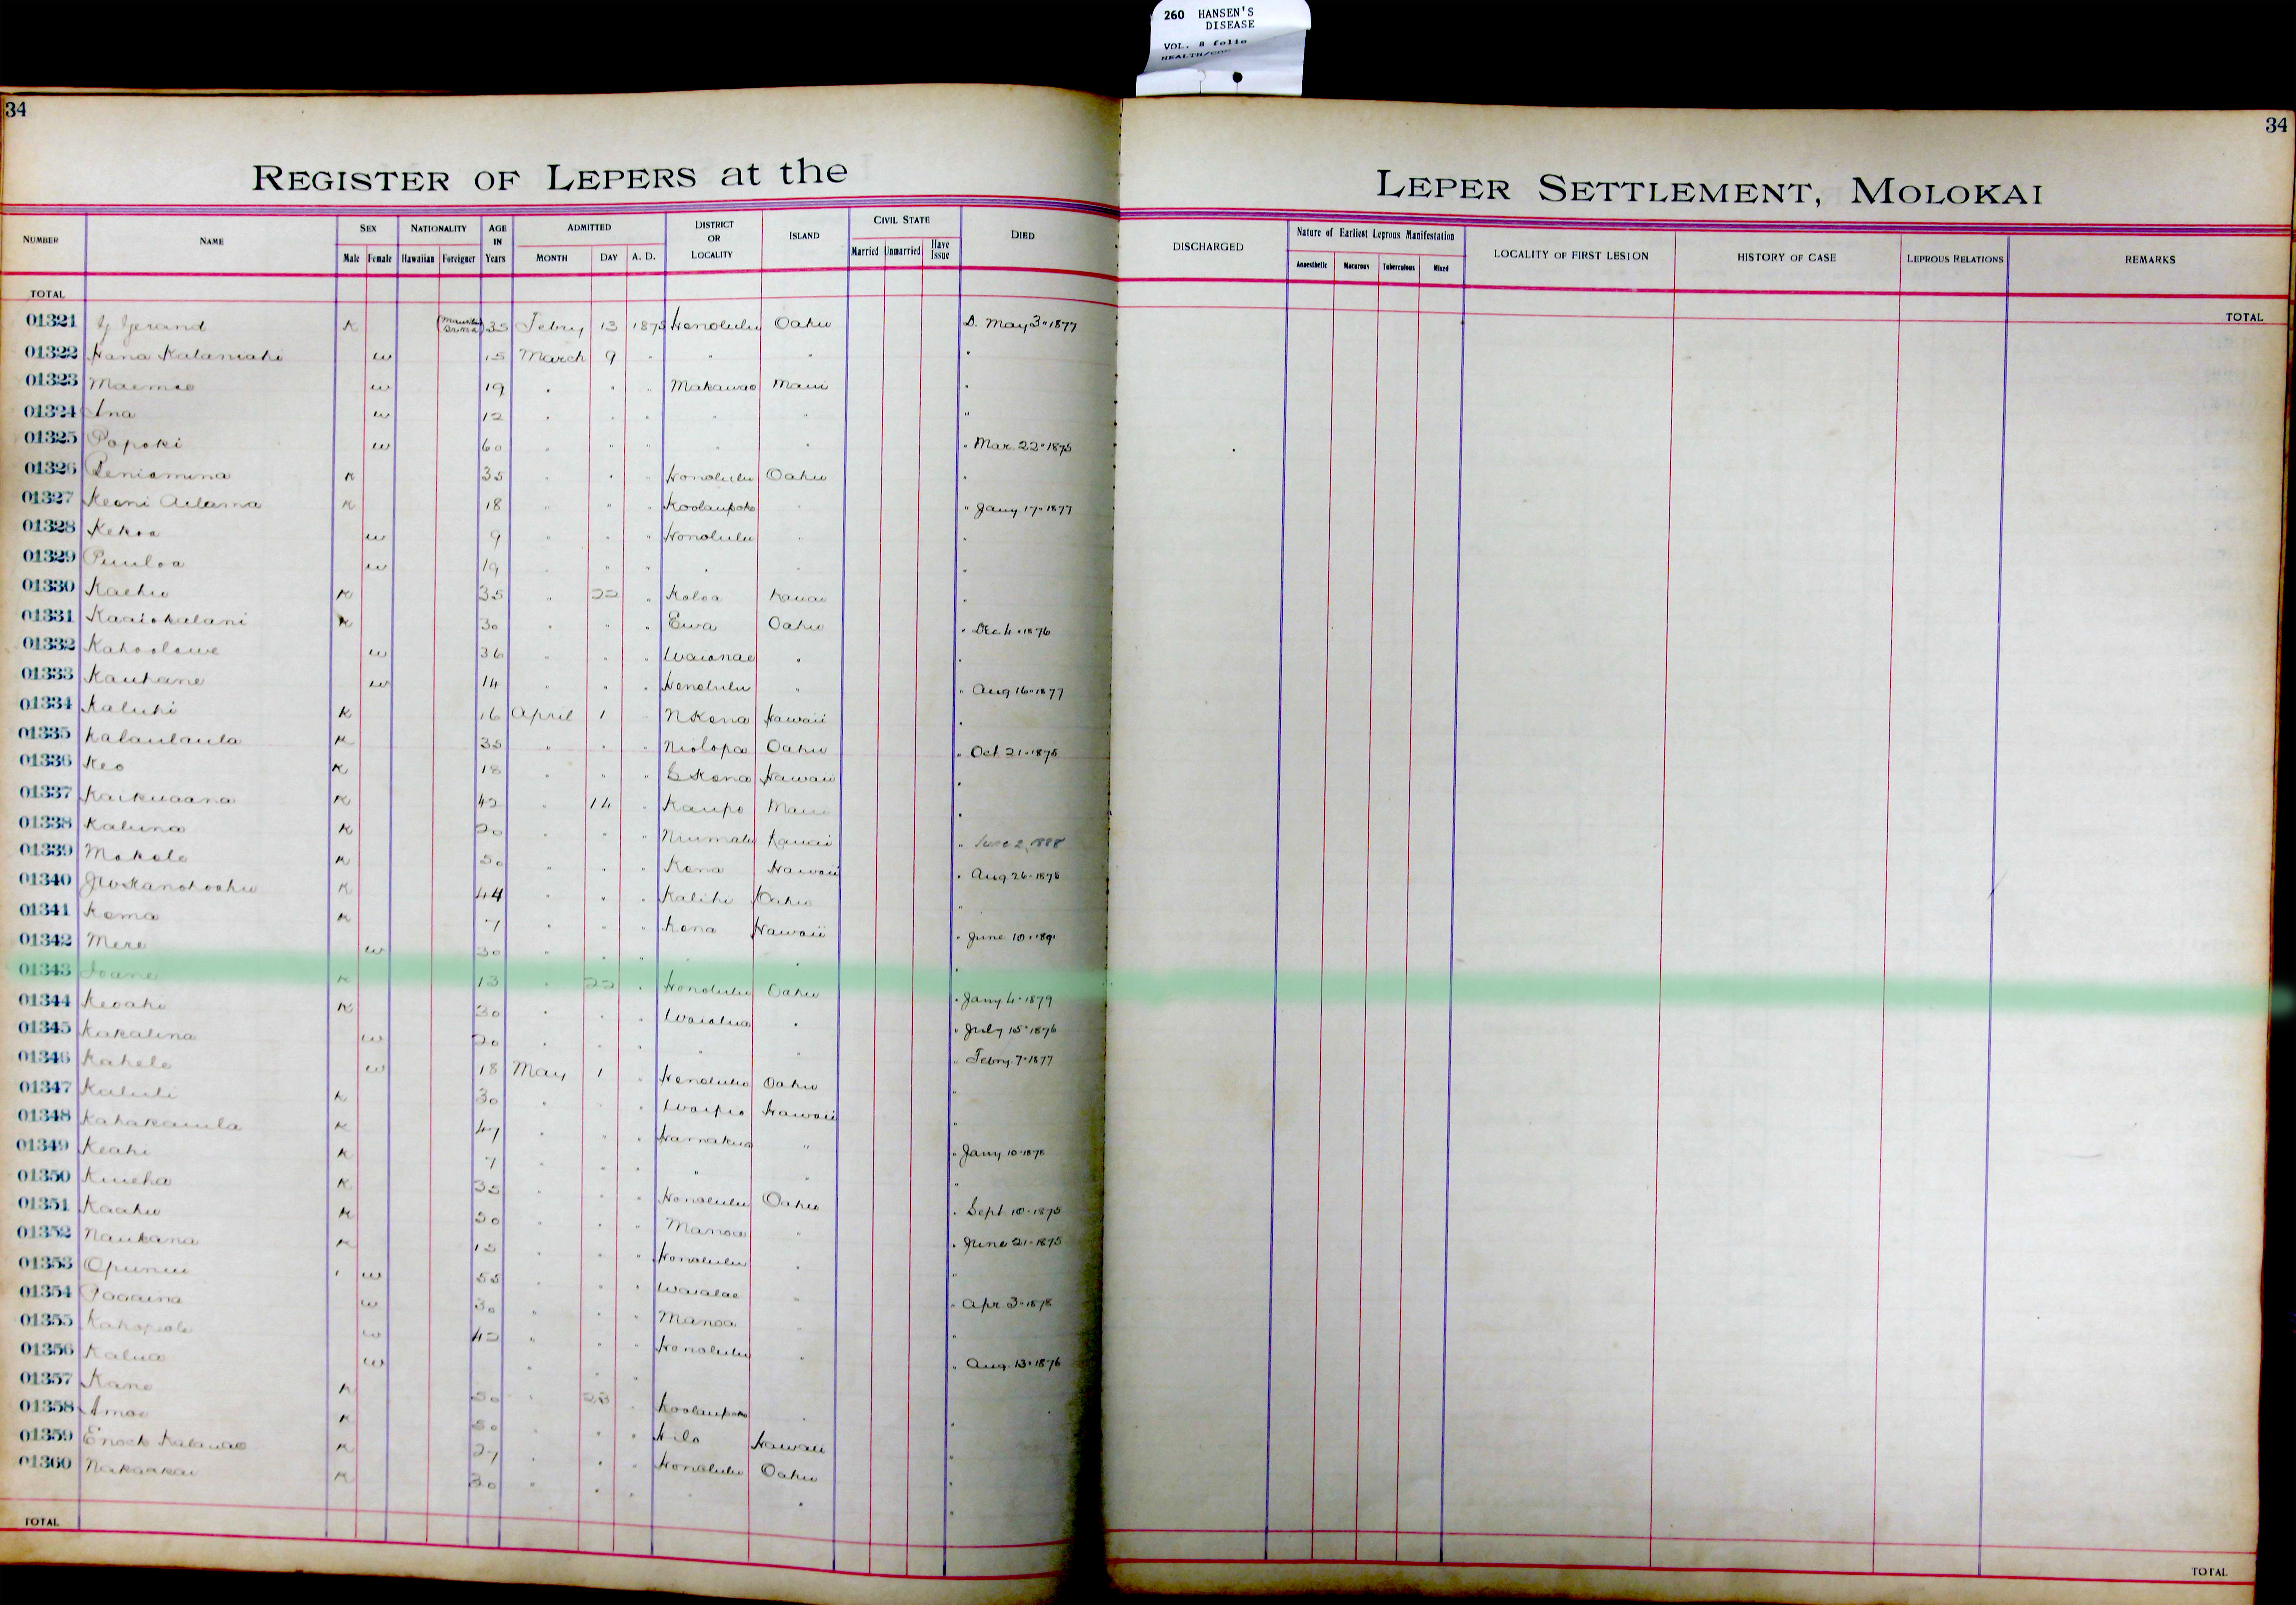 260 HANSEN'S
DISEASE
VOL. 8 folio
34
34
REGISTER OF LEPERS at the
LEPER SETTLEMENT, MOLOKAI
NUMBER NAME SEX Male Female NATIONALITY Hawaiian Foreigner AGE IN Years ADMITTED MONTH DAY A. D. DISTRICT OR LOCALITY ISLAND CIVIL STATE Married Unmarried Have Issue DIED
DISCHARGED Nature of Earliest Leprous Manifestation Anaesthetic Macurous Tuberculous Mixed LOCALITY OF FIRST LESION HISTORY OF CASE LEPROUS RELATIONS REMARKS
TOTAL
TOTAL
01321 K 35 Febry 13 1875 Honolulu Oahu D. May 3 " 1877
01322 Hana w 15 March 9 " " " "
01323 Maemae w 19 " " " Makawao Maui "
01324 Ina w 12 " " " " " "
01325 Popoki w 60 " " " " " " Mar. 22 " 1875
01326 Peniamina K 35 " " " Honolulu Oahu "
01327 Keoni Adama K 18 " " " Koolaupoko " " Jany 17 " 1877
01328 Kekoa w 9 " " " Honolulu " "
01329 Puuloa w 19 " " " " " "
01330 Kaehu K 35 " 22 " Koloa Kauai "
01331 Kaaiokalani K 30 " " " Ewa Oahu " Dec 4 " 1876
01332 Kahoolawe w 36 " " " Waianae " "
01333 Kauhane w 14 " " " Honolulu " " Aug 16 " 1877
01334 Kaluhi K 16 April 1 " N Kona Hawaii "
01335 Kalaulaula K 35 " " " Niolopa Oahu " Oct 21 " 1878
01336 Keo K 18 " " " S Kona Hawaii "
01337 Kaikuaana K 42 " 14 " Kaupo Maui "
01338 Kaluna K 20 " " " Niumalu Kauai " June 2, 1888
01339 Mokole K 50 " " " Kona Hawaii " Aug 26 " 1878
01340 K 44 " " " Kalihi Oahu "
01341 Koma K 7 " " " Kona Hawaii " June 10 " 1891
01342 Mere w 30 " " " " " "
01343 Ioane K 13 " 22 " Honolulu Oahu " Jany 4 " 1879
01344 Keoahi K 30 " " " Waialua " " July 15 " 1876
01345 Kakalina w 20 " " " " " " Febry. 7 " 1877
01346 Kahele w 18 May 1 " Honolulu Oahu "
01347 Kaluli K 30 " " " Waipio Hawaii "
01348 Kahakauila K 47 " " " Hamakua " " Jany 10 " 1878
01349 Keahi K 7 " " " " " "
01350 Kuueha K 35 " " " Honolulu Oahu " Sept 10 " 1875
01351 Kaahu K 50 " " " Manoa " " June 21 " 1875
01352 Naukana K 15 " " " Honolulu " "
01353 Opunui w 55 " " " Waialae " " Apr 3 " 1878
01354 Paaaina w 30 " " " Manoa " "
01355 w 42 " " " Honolulu " " Aug. 13 " 1876
01356 Kalua w " " "
01357 Kane K 50 " 23 " Koolaupoko " "
01358 Amoe K 50 " " " Hilo Hawaii "
01359 Enoch Kalauao K 27 " " " Honolulu Oahu "
01360 Nakaakai K 30 " " " " " "
TOTAL
TOTAL